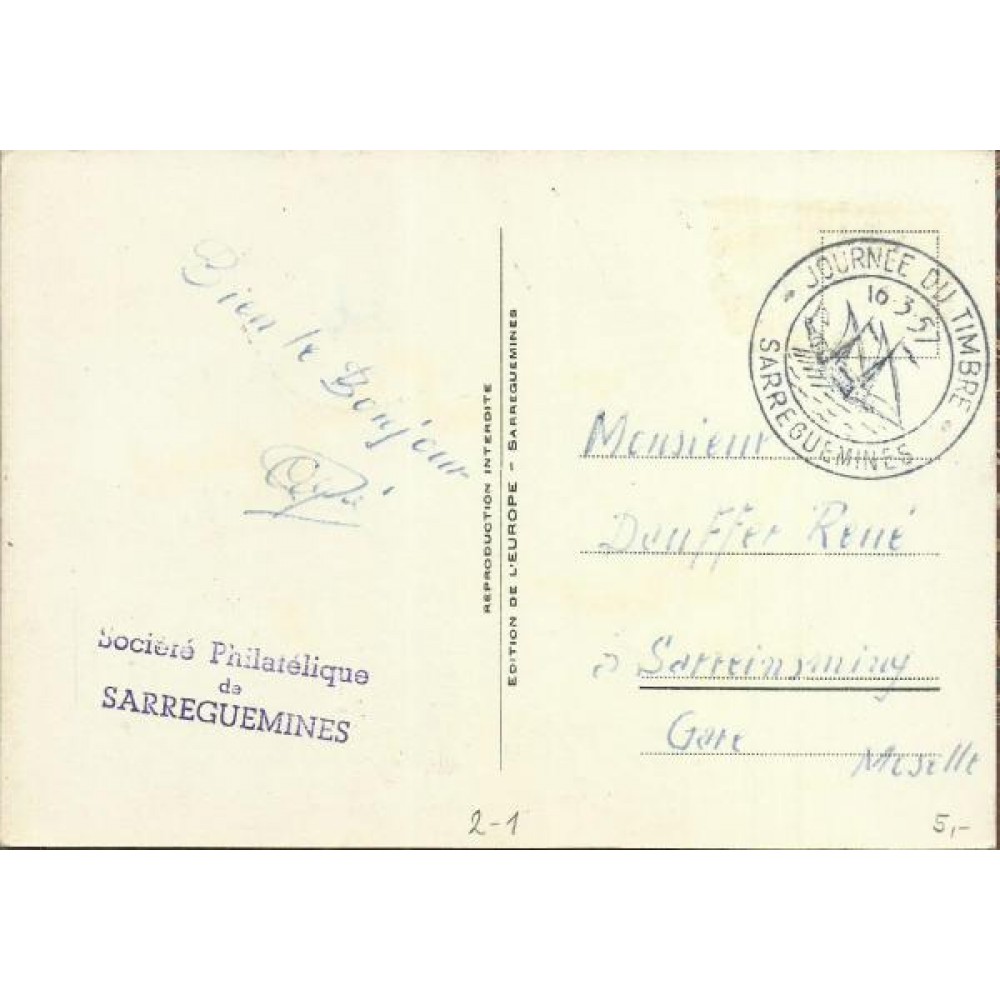 Bien le Bonjour
Société Philatélique
de
SARREGUEMINES
REPRODUCTION INTERDITE
EDITION DE L'EUROPE - SARREGUEMINES
JOURNÉE DU TIMBRE
16-3-57
SARREGUEMINES
Monsieur
Douffer René
à
Gare
Moselle
2-1
5,-